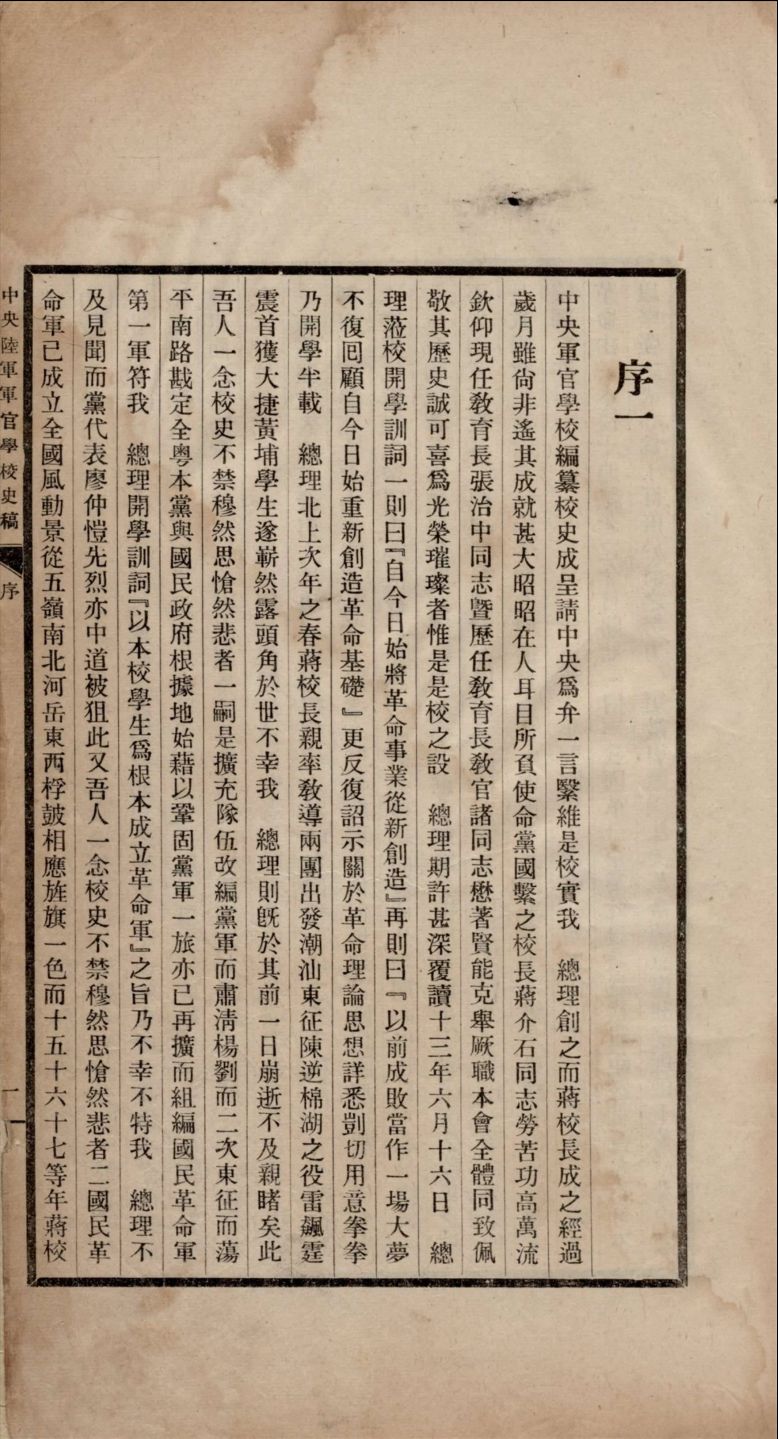 序一
中央軍官學校編纂校史成呈請中央爲弁一言繄維是校實我　總理創之而蔣校長成之經過
歲月雖尙非遙其成就甚大昭昭在人耳目所負使命黨國繫之校長蔣介石同志勞苦功高萬流
欽仰現任敎育長張治中同志曁歷任敎育長敎官諸同志懋著賢能克舉厥職本會全體同致佩
敬其歷史誠可喜爲光榮璀璨者惟是是校之設　總理期許甚深覆讀十三年六月十六日　總
理蒞校開學訓詞一則曰『自今日始將革命事業從新創造』再則曰『以前成敗當作一場大夢
不復回顧自今日始重新創造革命基礎』更反復詔示關於革命理論思想詳悉剴切用意拳拳
乃開學半載　總理北上次年之春蔣校長親率敎導兩團出發潮汕東征陳逆棉湖之役雷飆霆
震首獲大捷黃埔學生遂嶄然露頭角於世不幸我　總理則旣於其前一日崩逝不及親睹矣此
吾人一念校史不禁穆然思愴然悲者一嗣是擴充隊伍改編黨軍而肅淸楊劉而二次東征而蕩
平南路戡定全粤本黨與國民政府根據地始藉以鞏固黨軍一旅亦已再擴而組編國民革命軍
第一軍符我　總理開學訓詞『以本校學生爲根本成立革命軍』之旨乃不幸不特我　總理不
及見聞而黨代表廖仲愷先烈亦中道被狙此又吾人一念校史不禁穆然思愴然悲者二國民革
命軍已成立全國風動景從五嶺南北河岳東西桴鼓相應旌旗一色而十五十六十七等年蔣校
中央陸軍軍官學校史稿
序
一